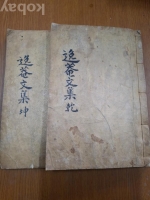 kobay
逸菴文集 乾
逸菴文集 坤